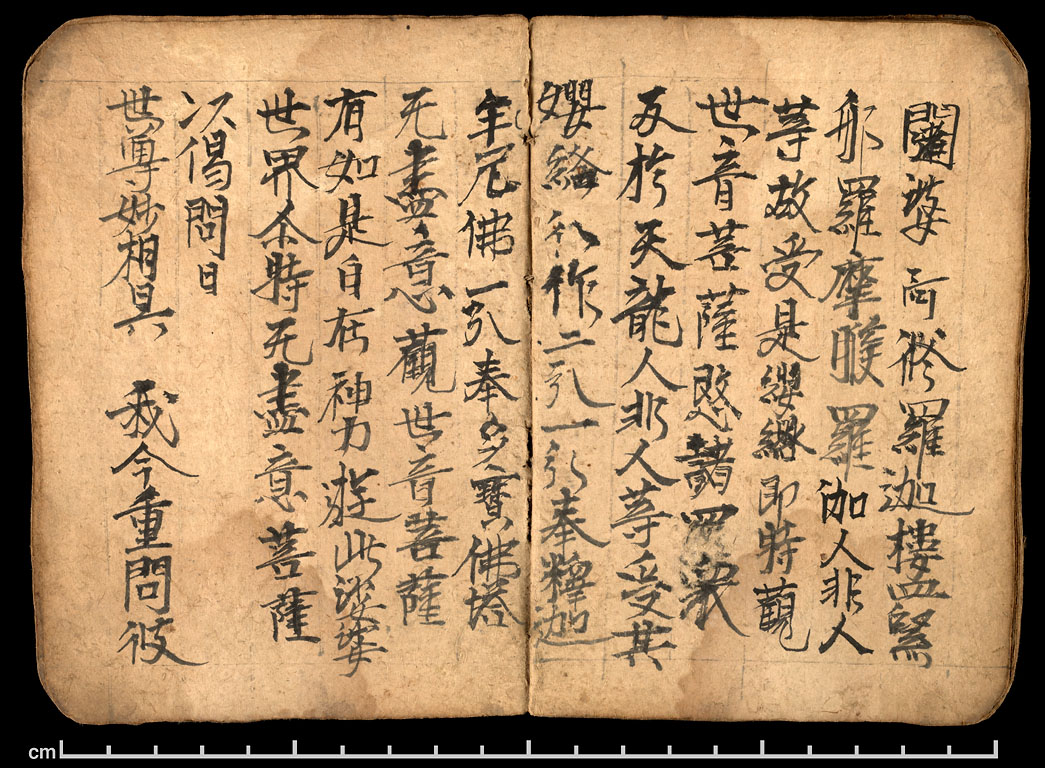 闥婆 阿修羅迦樓緊
那羅摩睺羅伽人非人
等故受是纓絡即時觀
世音菩薩愍諸四衆
及於天龍人非人等受其
瓔絡分作二分一分奉釋迦
牟尼佛一分奉多寶佛塔
无盡意觀世音菩薩
有如是自在神力遊此娑婆
世界尒時无盡意菩薩
以偈問曰
世尊妙相具 我今重問彼
cm